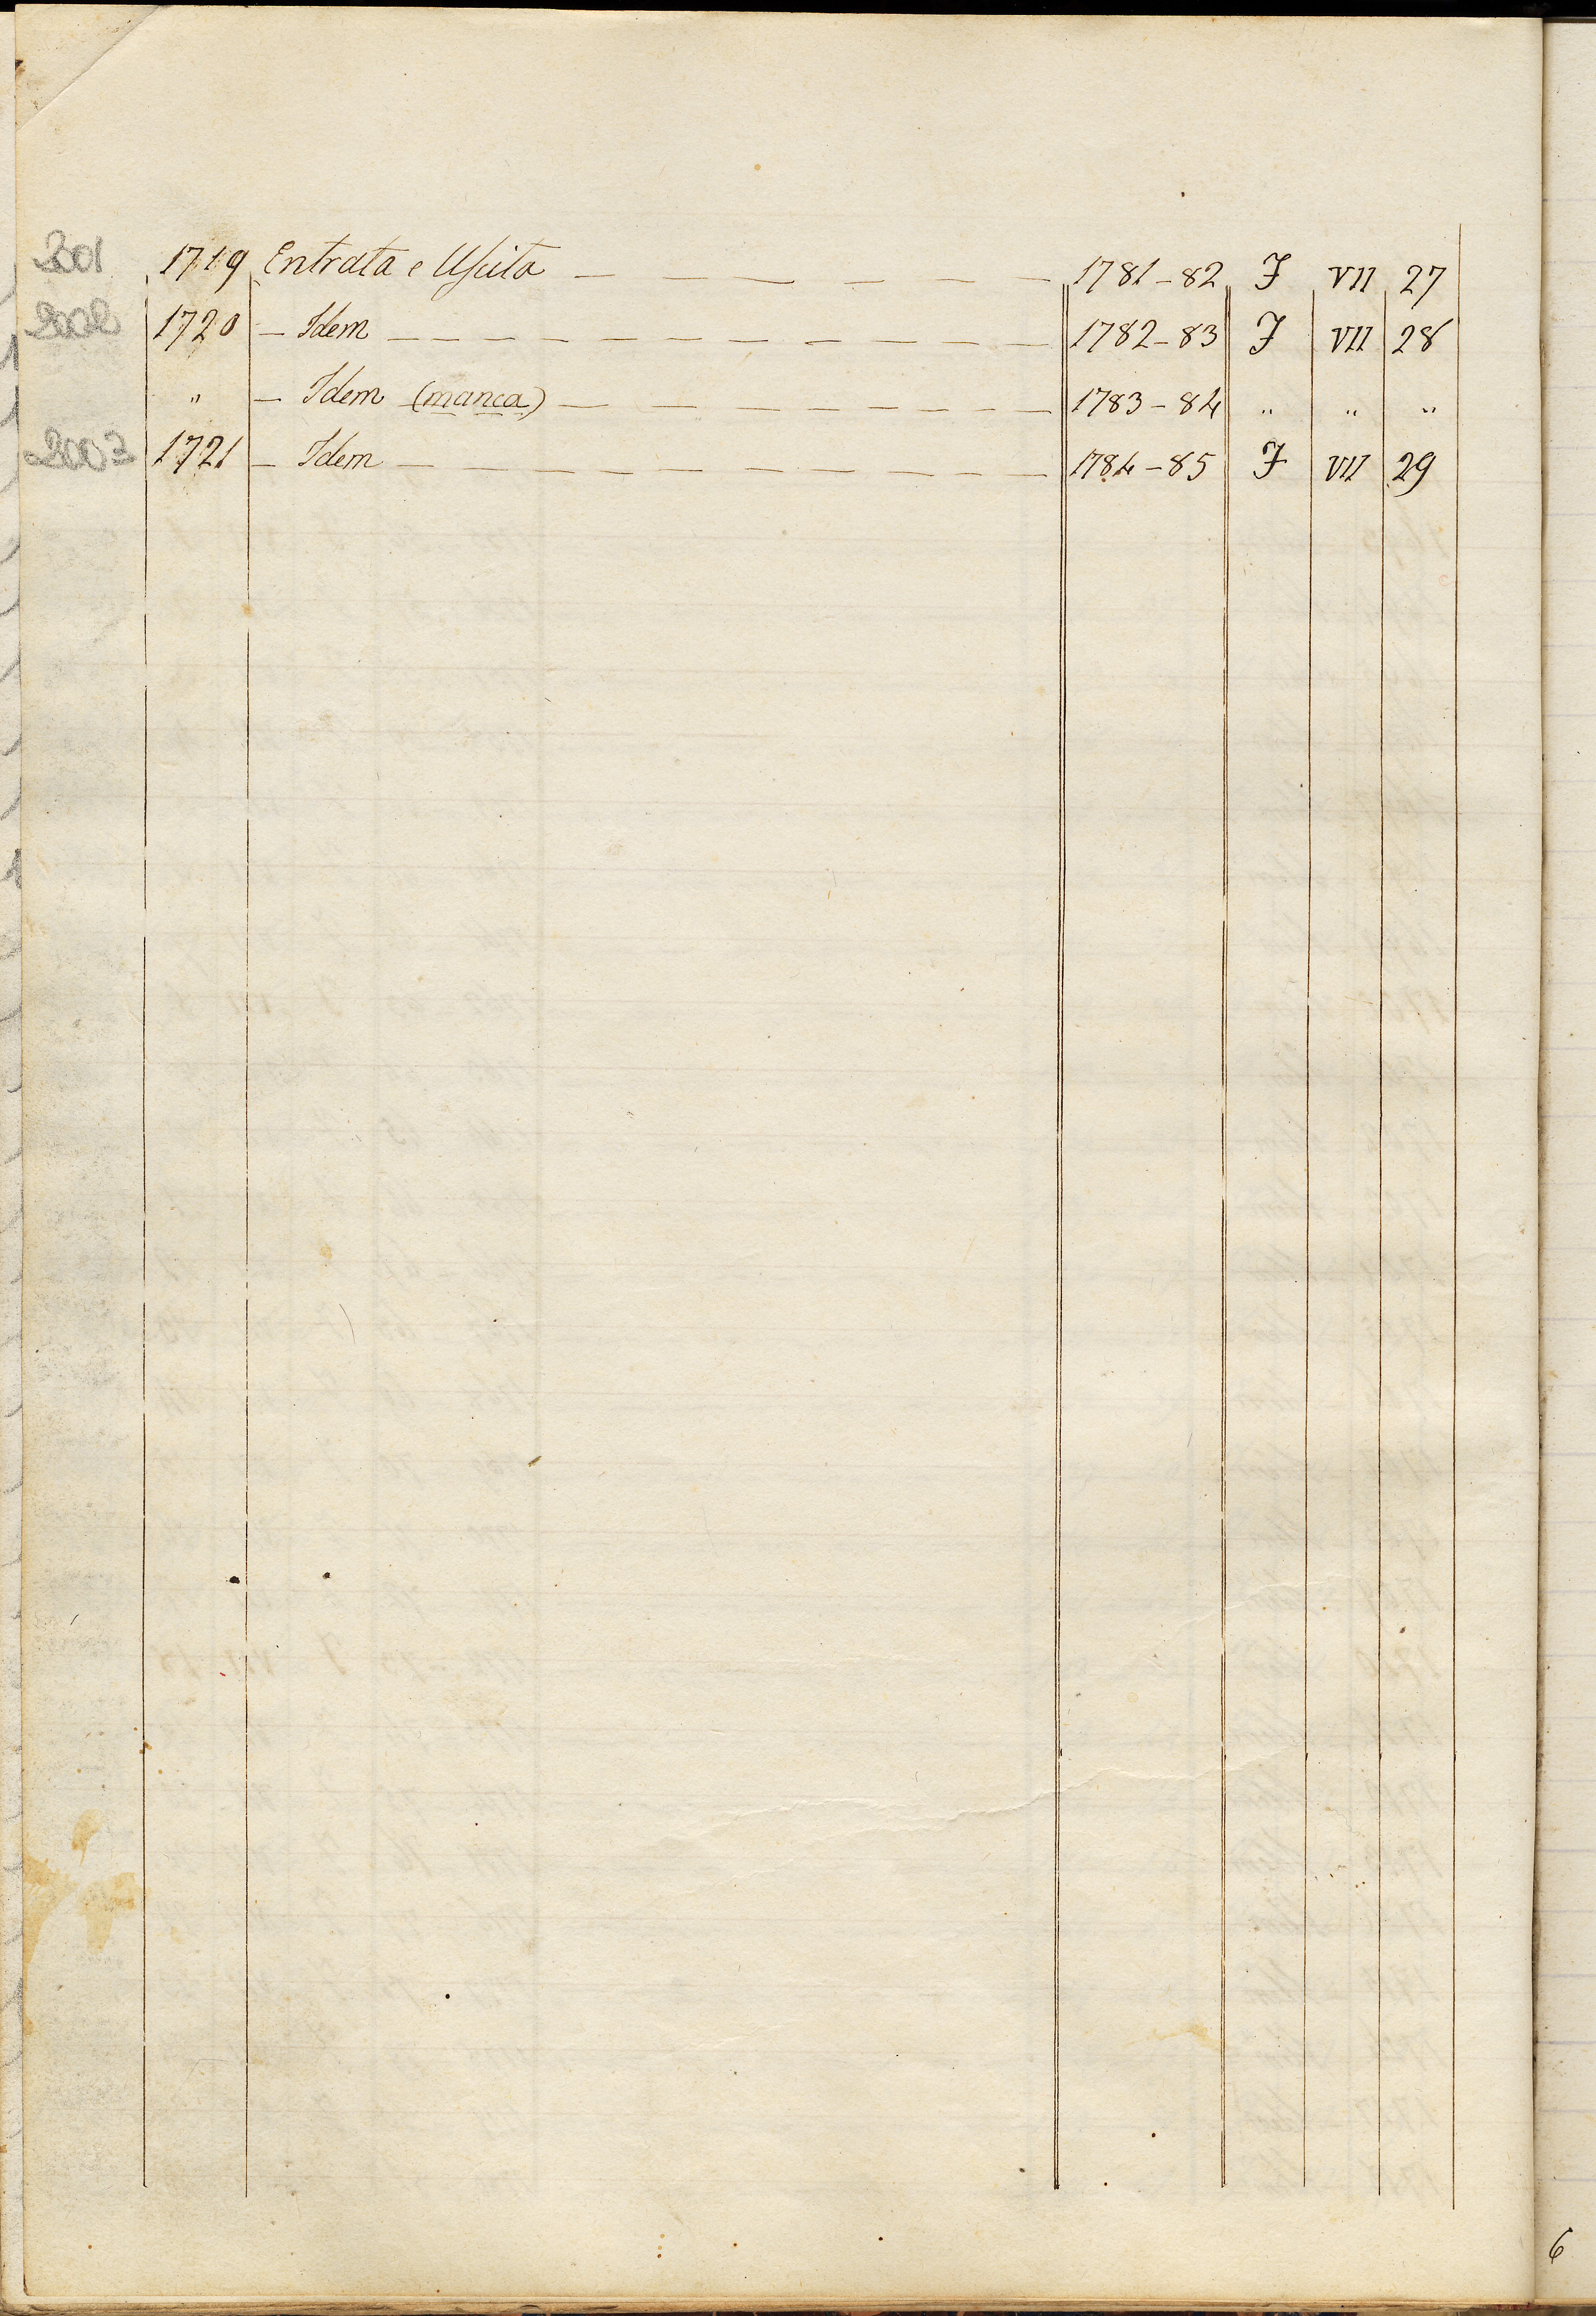 2001 1719 Entrata e Uscita — — — — — — — 1781-82 I VII 27
2002 1720 — Idem — — — — — — — — — — — — 1782-83 I VII 28
" — Idem (manca) — — — — — — — — — 1783-84 " " "
2003 1721 — Idem — — — — — — — — — — — — 1784-85 I VII 29
6